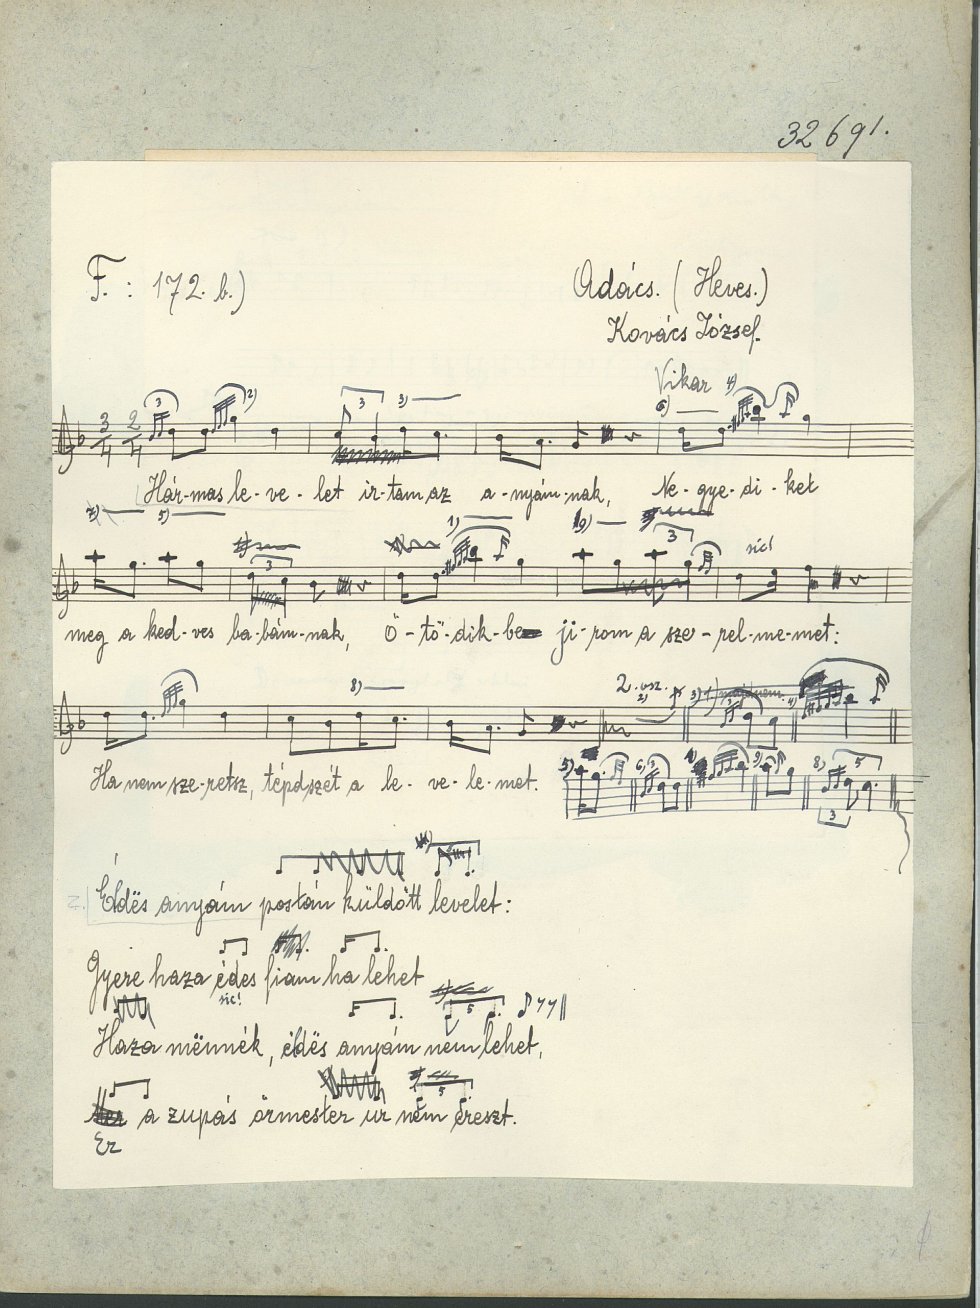 32691.
F.: 172. b.)
Adács. (Heves.)
Kovács József.
Vikar
Hár-mas le-ve-let ir-tam az a-nyám-nak, Ne-gye-di-ket
sic!
meg a ked-ves ba-bám-nak, Ö-tö-dik-be ji-rom a sze-rel-me-met:
2. vsz.
Ha nem sze-retsz, tépd szét a le-ve-le-met.
2. Édës anyám postán küldött levelet:
Gyere haza édes fiam ha lehet
sic!
Haza mënnék, édës anyám nem lehet,
a zupás örmester ur nem ereszt.
Ez